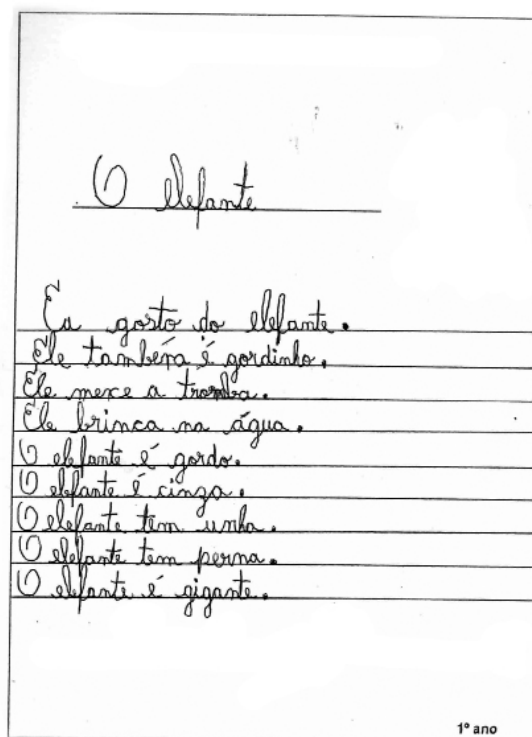 O elefante
Eu gosto do elefante.
Ele também é gordinho.
Ele mexe a tromba.
Ele brinca na água.
O elefante é gordo.
O elefante é cinza.
O elefante tem unha.
O elefante tem perna.
O elefante é gigante.
1º ano